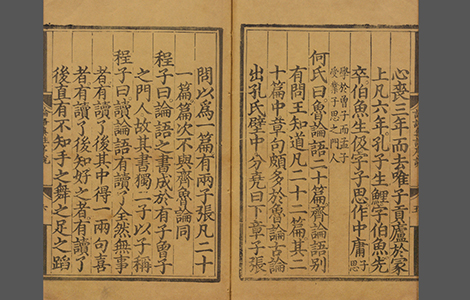 心喪三年而去唯子貢廬於冢
上凡六年孔子生鯉字伯魚先
卒伯魚生伋字子思作中庸子思
學於曾子而孟子
受業子思之門人
何氏曰魯論語二十篇齊論語別
有問王知道凡二十二篇其二
十篇中章句頗多於魯論古論
出孔氏壁中分堯曰下章子張
問以爲一篇有兩子張凡二十
一篇篇次不與齊魯論同
程子曰論語之書成於有子曾子
之門人故其書獨二子以子稱
程子曰讀論語有讀了全然無事
者有讀了後其中得一兩句喜
者有讀了後知好之者有讀了
後直有不知手之舞之足之蹈